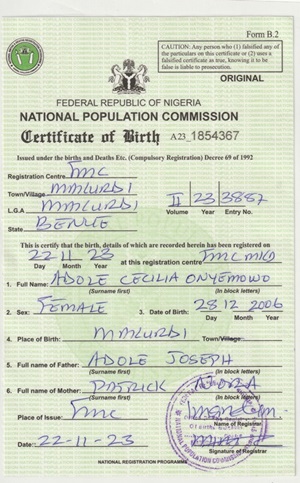 Form B.2
CAUTION: Any person who (1) falsified any of
the particulars on this certificate or (2) uses a
falsified certificate as true, knowing it to be
false is liable to prosecution.
ORIGINAL
FEDERAL REPUBLIC OF NIGERIA
NATIONAL POPULATION COMMISSION
Certificate of Birth A23 1854367
Issued under the births and Deaths Etc. (Compulsory Registration) Decree 69 of 1992
Registration Centre FMC
Town/Village
L.G.A
State BENUE
II 23 3887
Volume Year Entry No.
This is certify that the birth, details of which are recorded herein has been registered on
22 11 23 at this registration centre FMC
Day Month Year
1. Full Name: ADOLE CECILIA ONYEMOWO
(Surname first) (In block letters)
2. Sex: FEMALE 3. Date of Birth: 28 12 2006
Day Month Year
4. Place of Birth: Town/Village:
5. Full Name of Father: ADOLE JOSEPH
(Surname first) (In block letters)
6. Full Name of Mother: PATRICK
(Surname first) (In block letters)
Place of Issue: FMC
Name of Registrar
Date: 22-11-23
Signature of Registrar
NATIONAL REGISTRATION PROGRAMME